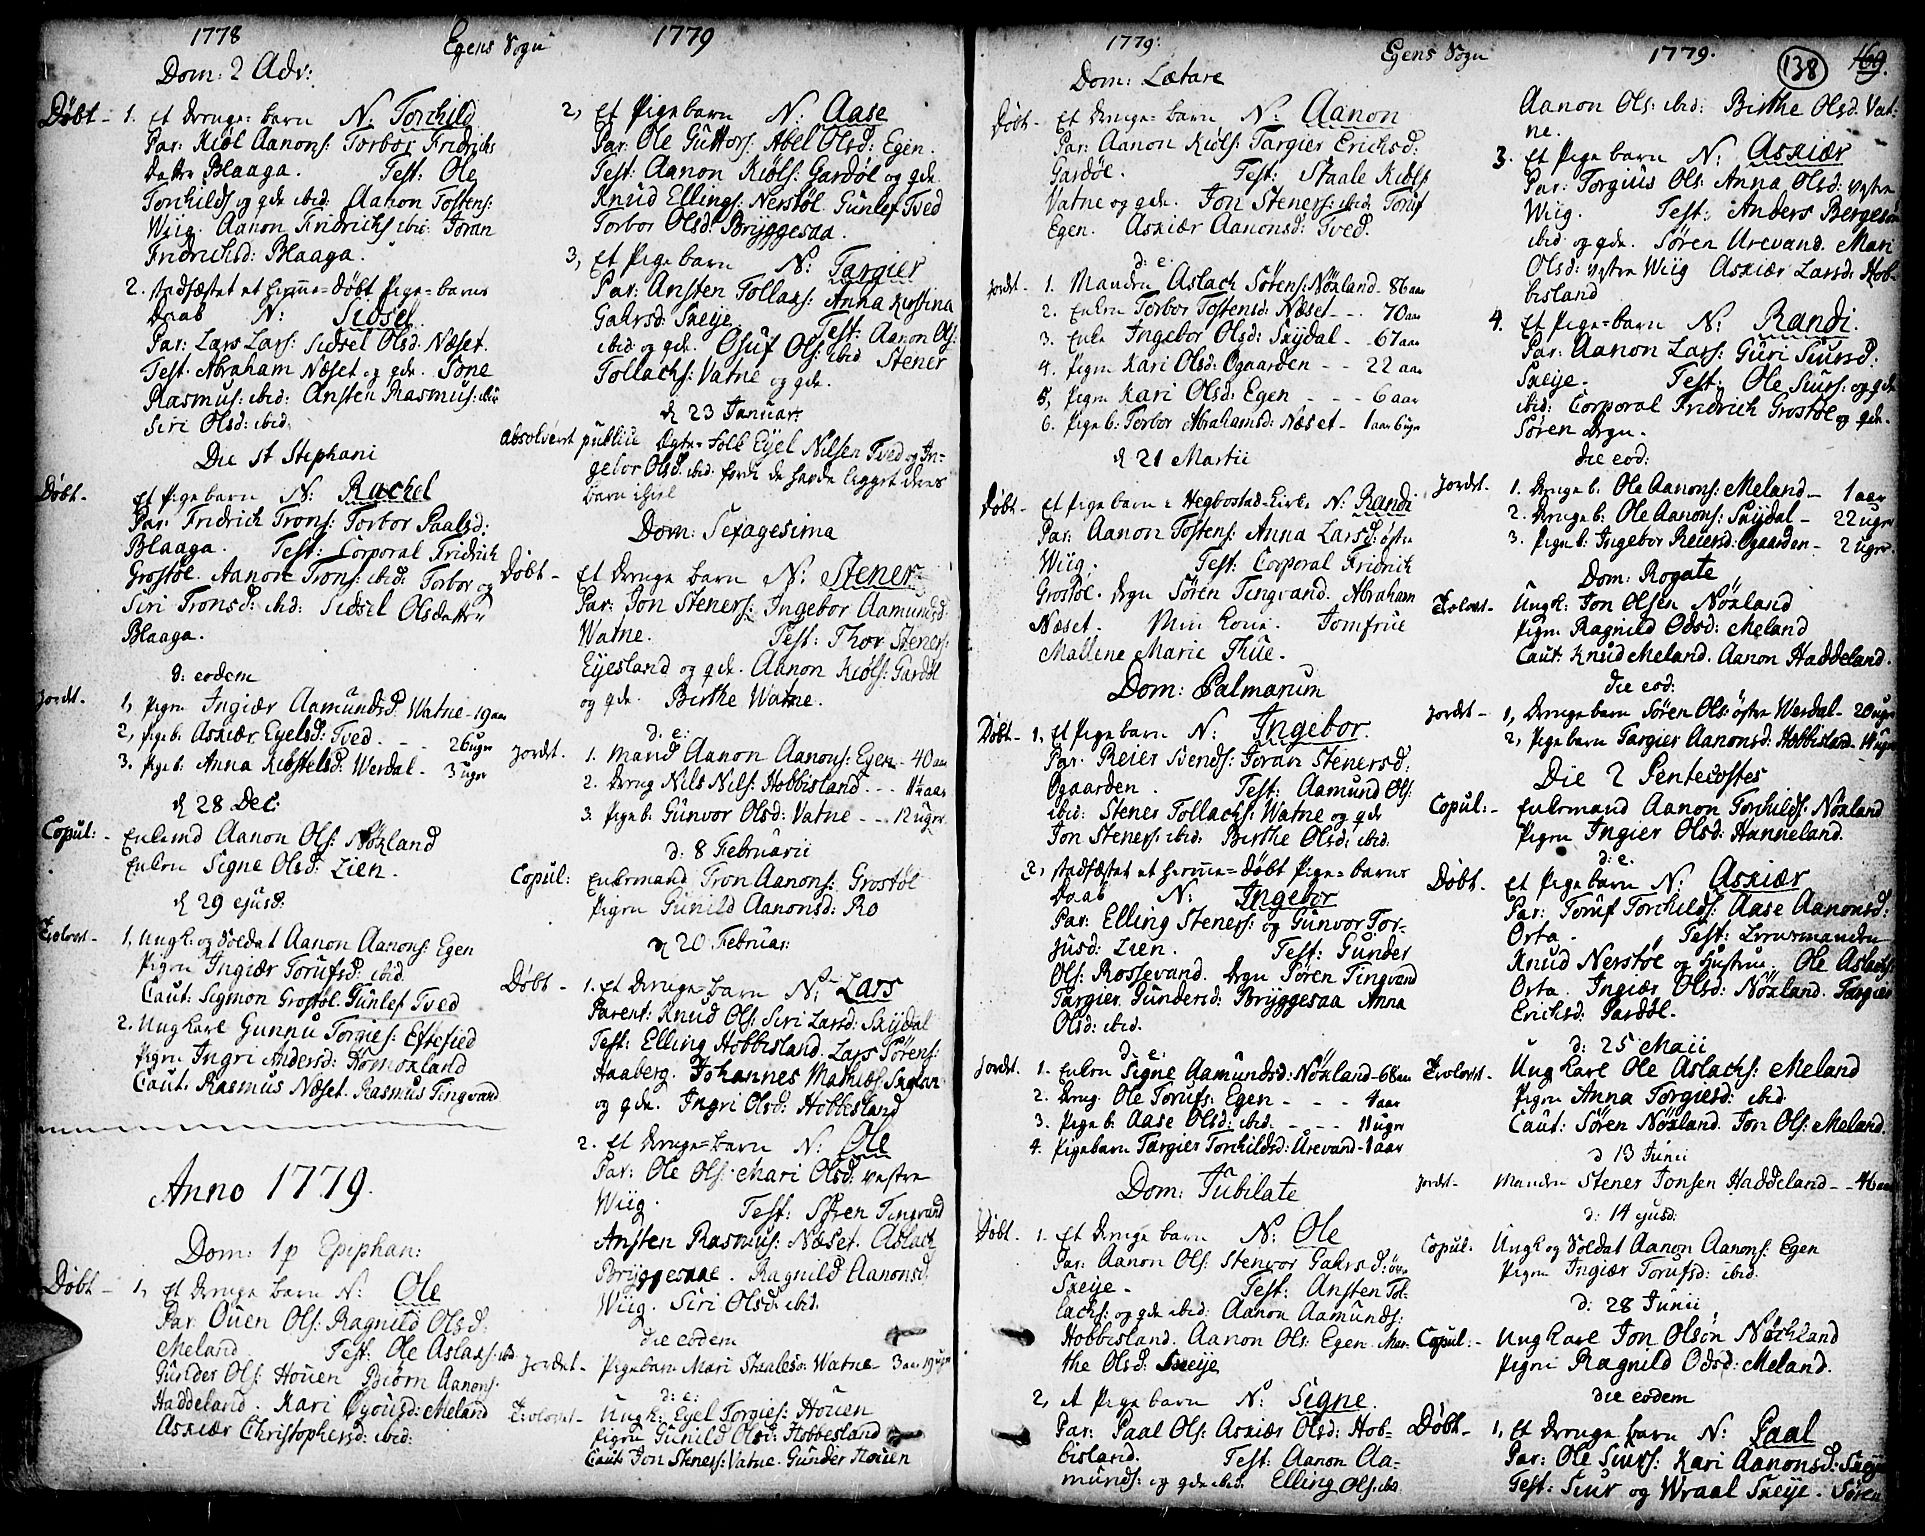 1778 Egens Sogn 1779
Dom: 2 Adv:
Døbt - 1. Et Drenge-barn N: Torchild
Par: Kiøl Aanons: Torbor Fridrichs
datter Blaaga. Test: Ole
Torchilds og gde ibid: Aanon Tostens:
Wiig. Aanon Fridrichs ibid: Joran
Fridrichsd: Blaaga.
2. stadfæstet et hjemme-døbt Pige-barns
Daab N: Sidsel
Par: Lars Lars: Sidsel Olsd: Næset.
Test: Abraham Næset og gde. Tone
Rasmus: ibid: Ansten Rasmus: ibid
Siri Olsd: ibid.
Die St Stephani
Døbt. Et Pige barn N: Rachel
Par: Fridrich Trons: Torbor Paalsd:
Blaaga. Test: Corporal Fridrich
Grostøl. Aanon Trons: ibid: Torbor og
Siri Tronsd: ibid: Sidsel Olsdatter
Blaaga.
d: eodem
Jordt. 1, Pigen Ingiær Aamundsd: Watne - 19 aar
2, pige b. Asxiær Eyelsd: Tved - 26 uger
3. Pige b. Anna Kiøstelsd: Werdal - 3 uger
d 28 Dec:
Copul: - Enkemd Aanon Ols: Nøxland
Enken Signe Olsd: Lien.
d 29 ejusd:
Trolovet - 1. Ungk: og Soldat Aanon Aanons: Egen
Pigen Ingiær Torufsd: ibid.
Caut: Sigmon Grostøl. Gunlef Tved
2. Ung karl Gunnu Torgies: Eftestøl
Pigen Ingri Andersd: Homoxland
Caut: Rasmus Næset. Rasmus Tingvand
Anno 1779.
Dom: 1 p Epiphan:
Døbt - 1, Et Drenge barn N: Ole
Par: Ouen Ols: Ragnild Olsd:
Meland. Test: Ole Aslaxs: ibd
Gunder Ols: Houen Biørn Aanons:
Haddeland. Kari Øyousd: Meland
Asxiær Christophersd: ibid:
2, Et Pige barn N: Aase
Par: Ole Guttors: Abel Olsd: Egen.
Test: Aanon Kiøls: Gardøl og gde.
Knud Ellings: Nerstøl. Gunlef Tved
Torbor Olsd: Bryggesaa.
3, Et Pige barn N: Targier
Par: Ansten Tollaxs: Anna Kirstina
Gahrsd: Sxeije. Test: Aanon Ols:
ibid: og gde. Osuf Ols: ibid Stener
Tollachs: Vatne og gde.
d 23 Januar:
Absolveret publice Ægte-folk Eyel Nilsen Tved og In-
gebor Olsd: ibid: fordi de havde ligget deres
barn ihiel
Dom: Sexagesima
Døbt - Et Drenge barn N: Stener
Par: Jon Steners: Ingebor Aamundsd:
Watne. Test: Thor Steners:
Eyesland og gde. Aanon Kiøls: Gardøl
og gde. Birthe Watne.
d: e:
Jordt. 1. Mand Aanon Aanons: Egen - 40 aar
2. Dreng Nils Nils: Hobbisland - - - 14 aar
3. Pige b. Gunvor Olsd: Vatne - - 12 uger.
d: 8 Februarii
Copul: Enkemand Tron Aanons: Grostøl
Pigen Gunild Aanonsd: Ro
d 20 Februar:
Døbt - 1. Et Drenge-barn N: Lars
Parent: Knud Ols: Siri Larsd: Sxÿdal
Test: Elling Hobbisland. Lars Sørens:
Haaberg. Johannes Mathias: Sxelan
og gde. Ingri Olsd: Hobbesland
2. Et Drenge-barn N: Ole
Par: Ole Ols: Mari Olsd: vestre
Wiig. Test: Søren Tingvand
Ansten Rasmus: Næset. Aslach
Bryggesaae. Ragnild Aanonsd:
Wiig. Siri Olsd: ibid.
die eodem
Jordet - Pigebarn Mari Staalesd: Watne - 3 aar 19 uger
d: e:
Trolovet - Ungk: Eyel Torgies: Houen
Pigen Gunild Olsd: Hobbesland
Caut: Jon Steners: Vatne. Gunder Houen
1779. Egens Sogn 1779. 138 169.
Dom: Lætare
Døbt - Et Drenge-barn N: Aanon
Par: Aanon Kiøls: Targier Ericksd:
Gardøl. Test: Staale Kiøls
Vatne og gde. Jon Steners: ibid: Toruf
Egen. Asxiær Aanonsd: Tved.
d: e:
Jordt. 1. Manden Aslach Sørens: Nøxland - 86 aar
2. Enken Torbor Tostensd: Næset - - - 70 aar
3. Enke Ingebor Olsd: Sxÿdal - - 67 aar
4. Pigen Kari Olsd: Ogaarden - - 22 aar
5, Pigen Kari Olsd: Egen - - - 6 aar
6. Pige b: Torbor Abrahamsd: Næset - 1 aar 6 uger
d 21 Martii
Døbt - Et Pige barn i Hegbostad-Kirke N: Randi
Par: Aanon Tostens: Anna Larsd: østre
Wiig. Test: Corporal Fridrich
Grostøl. Dgn Søren Tingvand. Abraham
Næset. Min Kone. Jomfrue
Mallene Marie Thue.
Dom: Palmarum
Døbt - 1. Et Pige barn N: Ingebor.
Par: Reier Svends: Joran Stenersd:
Ogaarden. Test: Aamund Ols:
ibid: Stener Tollachs: Watne og gde
Jon Steners: ibid: Birthe Olsd: ibid.
2, stadfæstet et hjemme-døbt Pige-barns
Daab N: Ingebor
Par: Elling Steners: og Gunvor Tor-
jusd: Lien. Test: Gunder
Ols: Rossevand. Dgn Søren Tingvand
Targier Gundersd: Bryggesaa Anna
Olsd: ibid.
d: e:
Jordt. 1. Enken Signe Aamundsd: Nøxland - 68 aar
2. Dreng. Ole Torufs: Egen - - - 4 aar
3. Pige b. Aase Olsd: ibid. - - - - 11 uger
4. Pigebarn Targier Torchildsd: Urevand - 1 aar
Dom: Jubilate
Døbt. 1. Et Drenge barn N: Ole
Par: Aanon Ols: Stenvor Gahrsd: øvre
Sxeije. Test: Ansten Tol-
lachs: og gde ibid: Aanon Aamunds:
Hobbisland. Aanon Ols: Egen. Mar-
the Olsd: Sxeije
2, et Pige barn N: Signe.
Par: Paal Ols: Asxiær Olsd: Hob-
bisland. Test: Aanon Aa-
munds: og gde ibid: Elling Ols: ibd.
Aanon Ols: ibid: Birthe Olsd: Vat:
ne.
3. Et Pige barn N: Asxiær
Par: Torgius Ols: Anna Olsd: vestre
Wiig. Test: Anders Bergesen
ibid og gde. Søren Urevand. Mari
Olsd: vestre Wiig Asxiær Larsd: Hob-
bisland
4. Et Pige-barn N: Randi.
Par: Aanon Lars: Guri Siursd:
Sxeije. Test: Ole Siurs: og gde
ibid: Corporal Fridrich Grostøl og gde.
Søren Degn.
die eod:
Jordt. 1. Drenge b. Ole Aanons: Meland - 1 aar
2. Drenge b: Ole Aanons: Sxÿdal - 22 uger
3. Pige b: Ingebor Reiersd: Ogaarden - 2 uger.
Dom: Rogate
Trolovet - Ungk: Jon Olsen Nøxland
Pigen Ragnild Odsd: Meland
Caut: Knud Meland. Aanon Haddeland.
die eod:
Jordt - 1, Drenge barn Søren Ols: østre Werdal - 20 uger
2, Pige barn Targier Aanonsd: Hobbisland - 11 uger
Die 2 Pentecostes
Copul: - Enkemand Aanon Torchilds: Nøxland
Pigen Ingier Olsd: Hanneland.
d: e:
Døbt. Et Pige barn N: Asxiær
Par: Toruf Torchilds: Aase Aanonsd:
Orta. Test: Lensmanden
Knud Nerstøl og Hustrue. Ole Aslachs:
Orta. Ingiær Olsd: Nøxland. Targier
Ericksd: Gardøl.
d: 25 Maii
Trolovet - Ung karl Ole Aslachs: Meland
Pigen Anna Torgiesd: ibid.
Caut: Søren Nøxland. Jon Ols: Meland.
d 13 Junii
Jordt - Manden Stener Jonsen Haddeland - - 46 aar
d: 14 ejusd:
Copul: Ungk og Soldat Aanon Aanons: Egen
Pigen Ingiær Torufsd: ibid.
d: 28 Junii
Copul: - Ung karl Jon Olsøn Nøchland
Pigen Ragnild Odsd: Meland.
die eodem
Døbt - 1, Et Drenge barn N: Paal
Par: Ole Siurs: Kari Aanonsd: Sxeije
Test: Siur og Wraal Sxeije. Søren